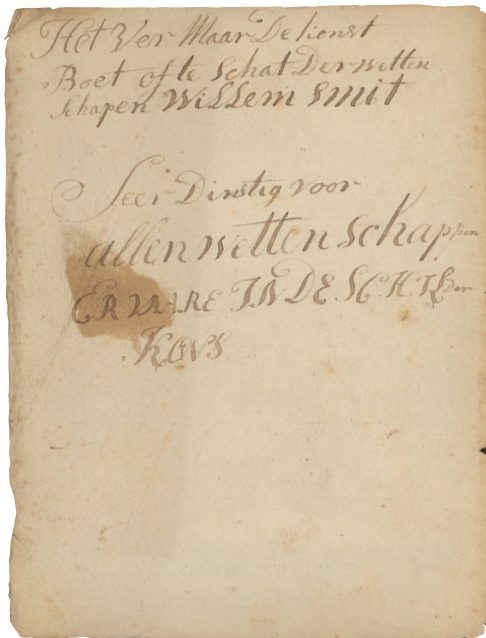 Het Ver Maar De konst
Boet of te Schat Der wetten
schapen Willem Smit
Seer Dinstig voor
allen wetten schappen
ERVAARE IN DE SCHILder
KOVS